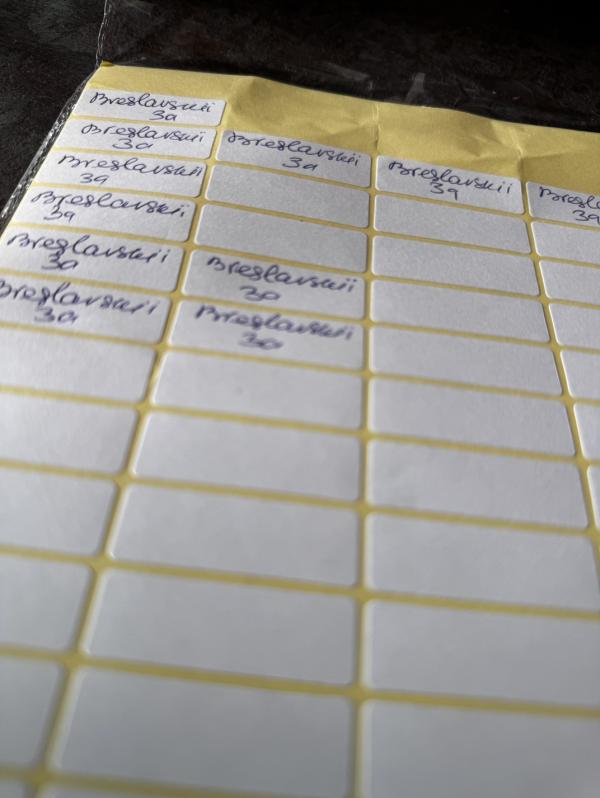 Breslavskii
3a
Breslavskii
3a
Breslavskii
3a
Breslavskii
3a
Breslavskii
3a
Breslavskii
3a
Breslavskii
3a
Breslavskii
3a
Breslavskii
3a
Breslavskii
3a
Bresla
3a